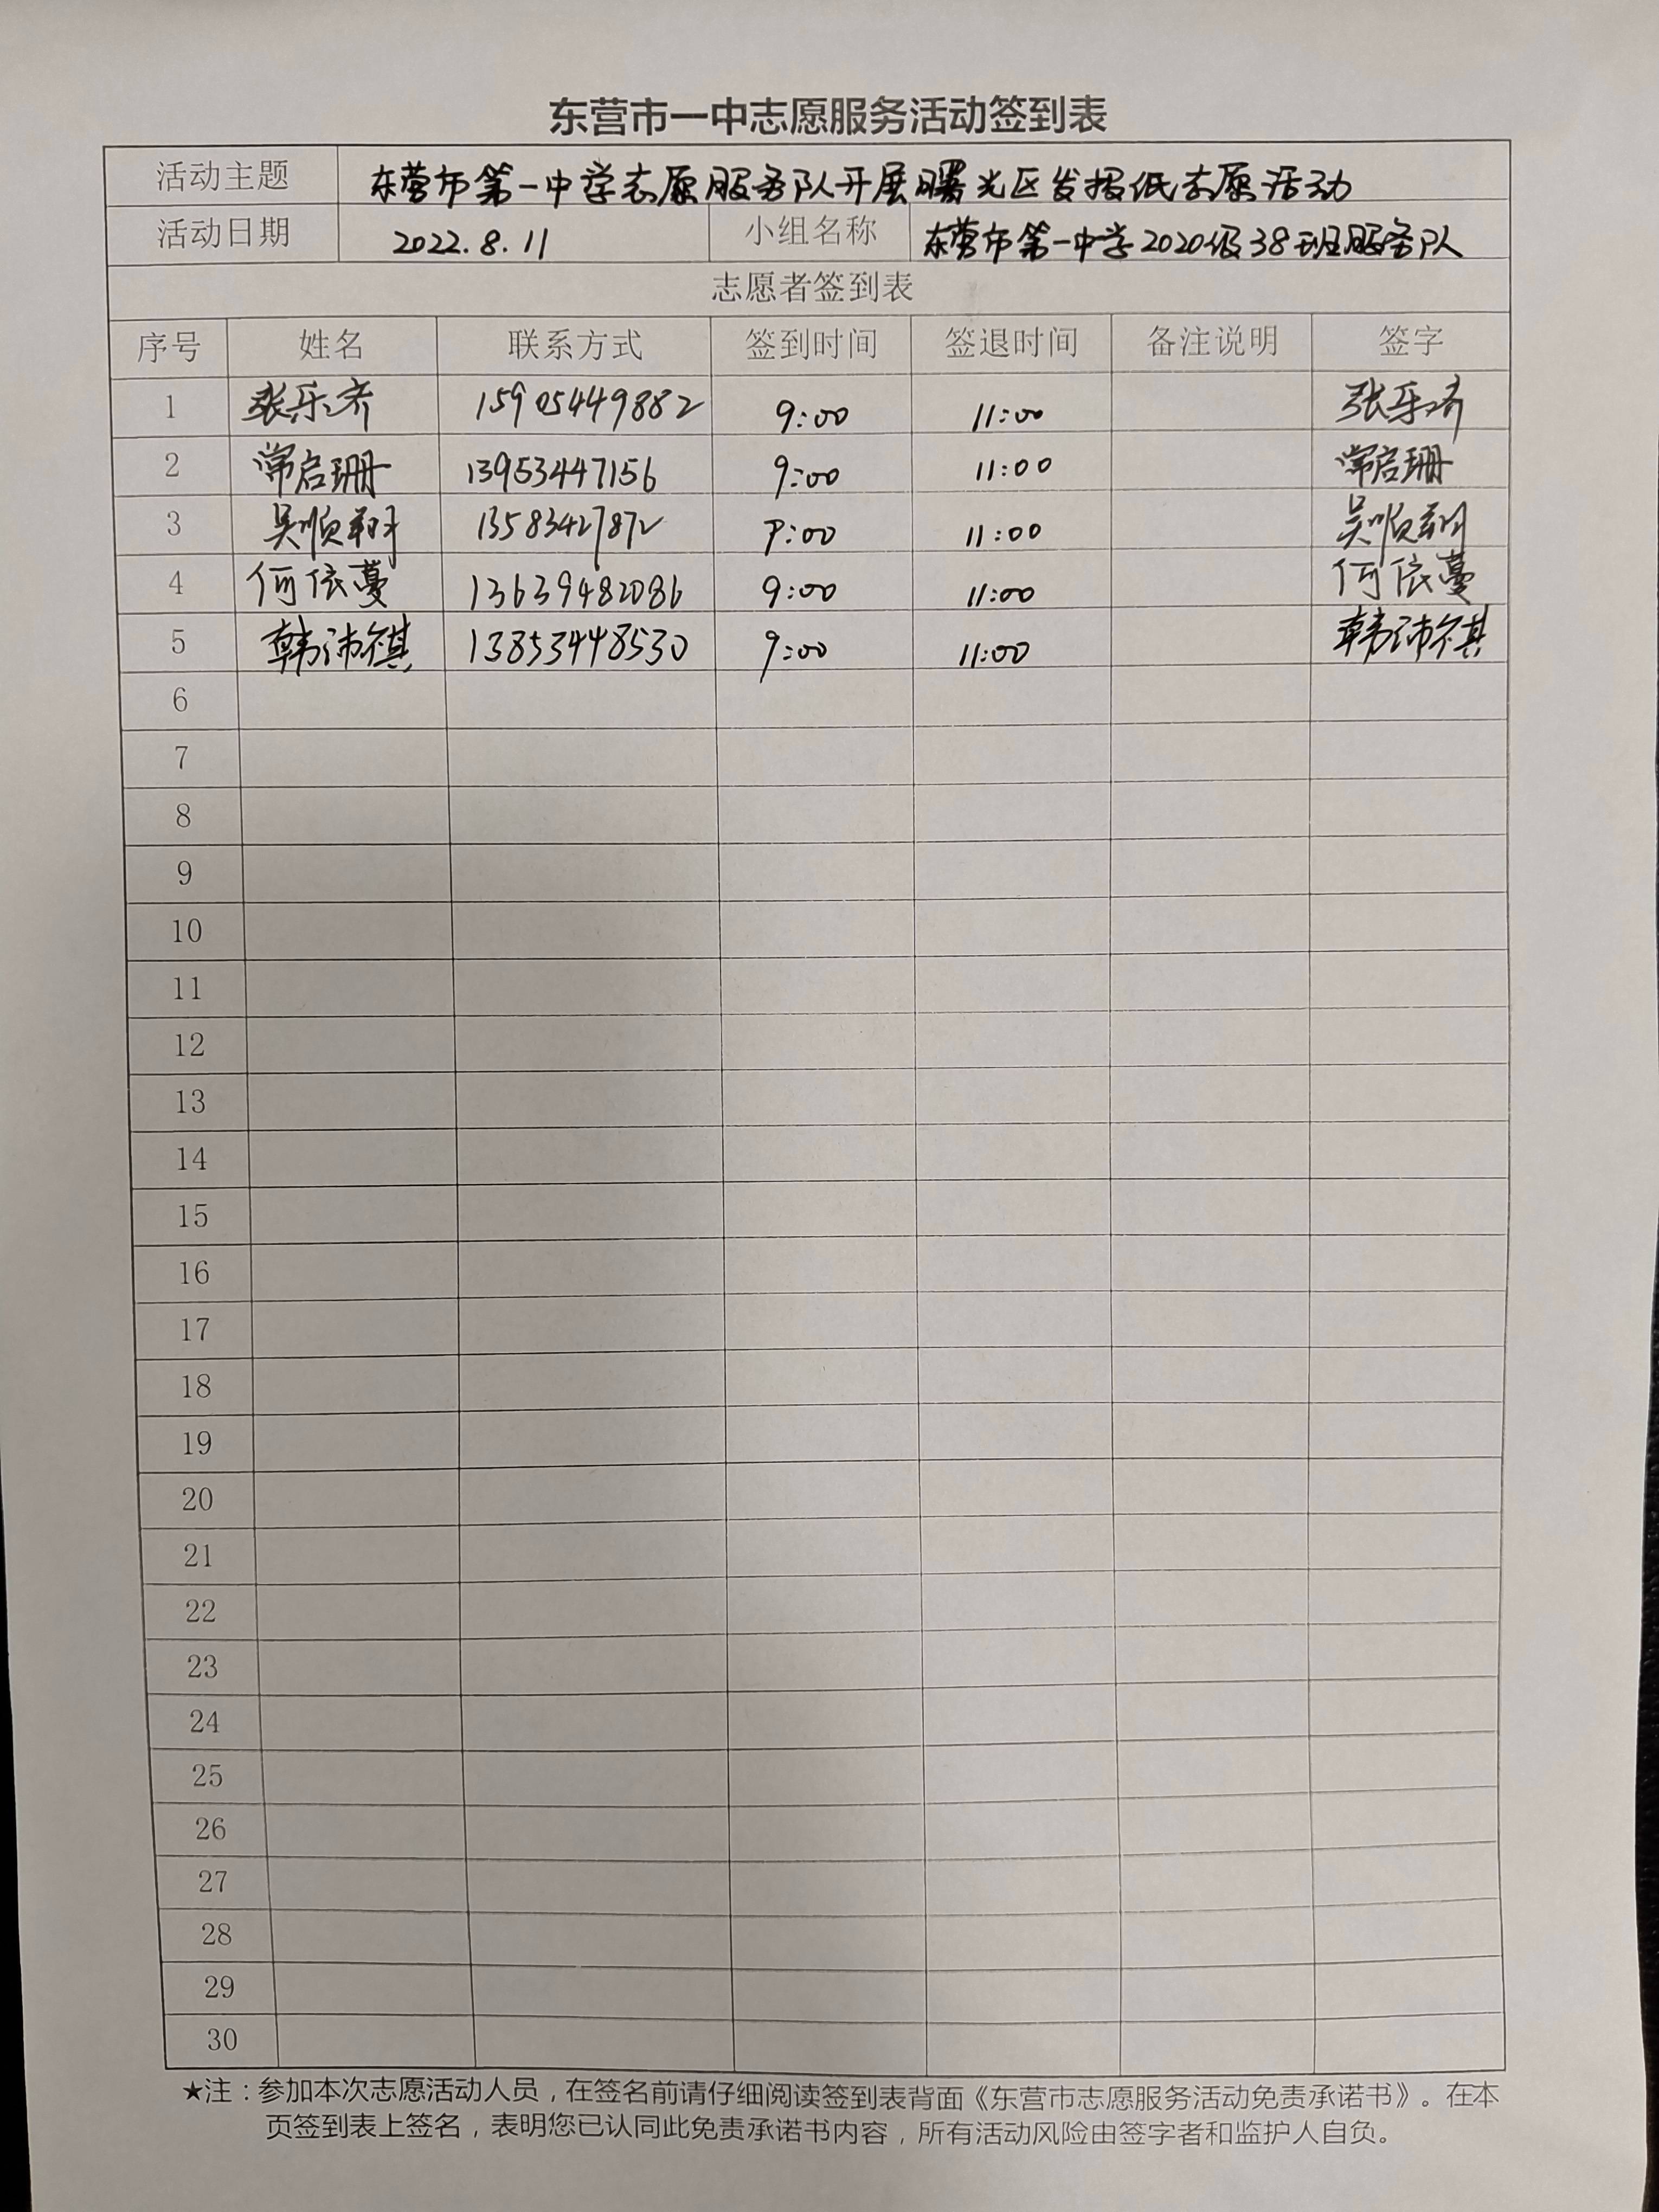 东营市一中志愿服务活动签到表
活动主题 东营市第一中学志愿服务队开展曙光区发报纸志愿活动
活动日期 2022.8.11 小组名称 东营市第一中学2020级38班服务队
志愿者签到表
序号 姓名 联系方式 签到时间 签退时间 备注说明 签字
1 张乐济 15905449882 9:00 11:00 张乐济
2 常启珊 13953447156 9:00 11:00 常启珊
3 吴顺翔 13583427872 9:00 11:00 吴顺翔
4 何依蔓 13639482086 9:00 11:00 何依蔓
5 韩沛祺 13853448530 9:00 11:00 韩沛祺
6
7
8
9
10
11
12
13
14
15
16
17
18
19
20
21
22
23
24
25
26
27
28
29
30
★注：参加本次志愿活动人员，在签名前请仔细阅读签到表背面《东营市志愿服务活动免责承诺书》。在本
页签到表上签名，表明您已认同此免责承诺书内容，所有活动风险由签字者和监护人自负。